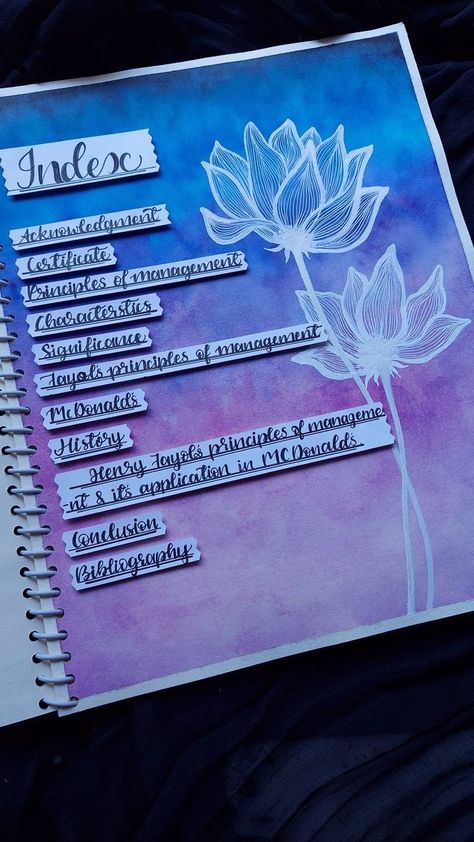 Index
Acknowledgment
Certificate
Principles of management
Characterstics
Significance
Fayol's principles of management
McDonald's
History
Henry Fayol's principles of manageme
-nt & it's application in McDonald's
Conclusion
Bibliography